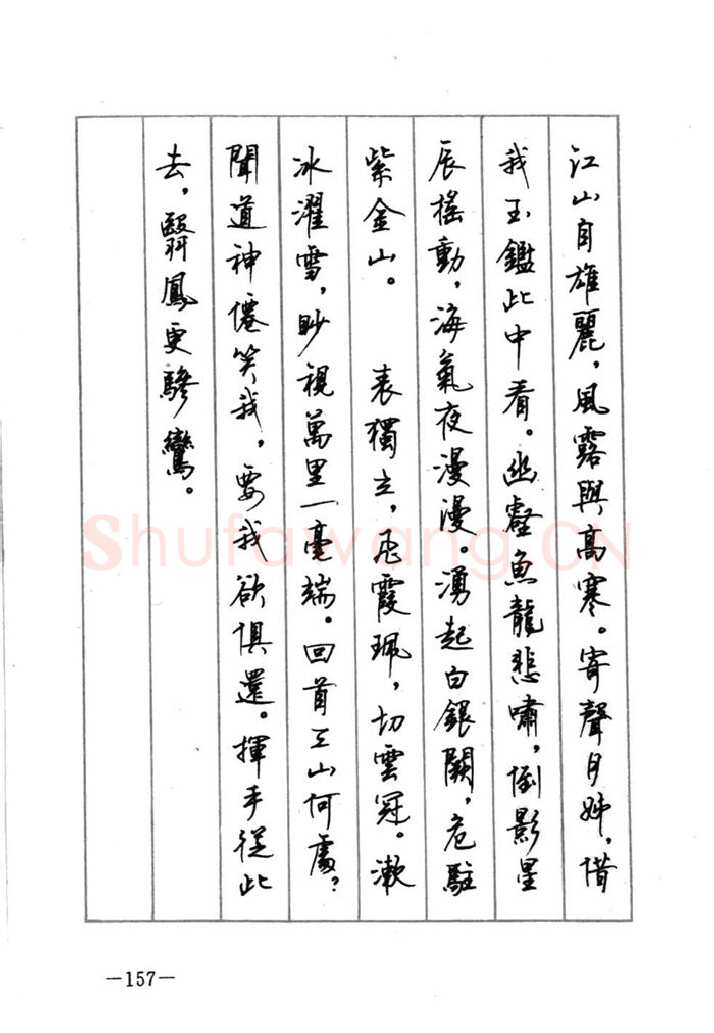 江山自雄麗，風露與高寒。寄聲月姊，借
我玉鑑此中看。幽壑魚龍悲嘯，倒影星
辰搖動，海氣夜漫漫。湧起白銀闕，危駐
紫金山。 表獨立，飛霞珮，切雲冠。漱
冰濯雪，眇視萬里一毫端。回首三山何處，
聞道神僊笑我，要我欲俱還。揮手從此
去，翳鳳更驂鸞。
Shufawang.CN
—157—